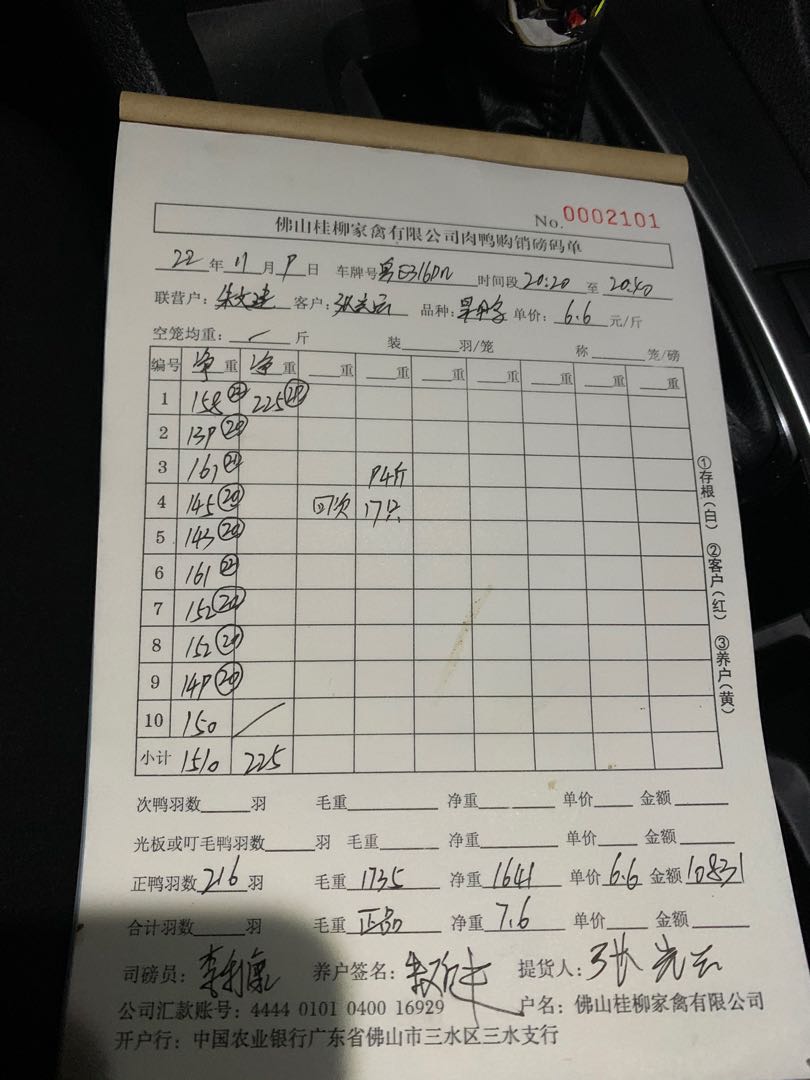 No. 0002101
佛山桂柳家禽有限公司肉鸭购销磅码单
22年11月9日 车牌号粤E316DN 时间段20:20至20:40
联营户: 客户:张光云 品种: 单价:6.6元/斤
空笼均重:/斤 装 羽/笼 称 笼/磅
编号 净重 净重 重 重 重 重 重 重
1 158 225
2 139 20
3 167 94斤
4 145 20 回次 17只
5 143 20
6 161 22
7 152 20
8 152 20
9 149 20
10 150 /
小计 1510 225
①存根(白) ②客户(红) ③养户(黄)
次鸭羽数 羽 毛重 净重 单价 金额
光板或叮毛鸭羽数 羽 毛重 净重 单价 金额
正鸭羽数216羽 毛重1735 净重1641 单价6.6 金额10831
合计羽数 羽 毛重正品 净重7.6 单价 金额
司磅员: 养户签名: 提货人:张光云
公司汇款账号:4444 0101 0400 16929 户名:佛山桂柳家禽有限公司
开户行:中国农业银行广东省佛山市三水区三水支行